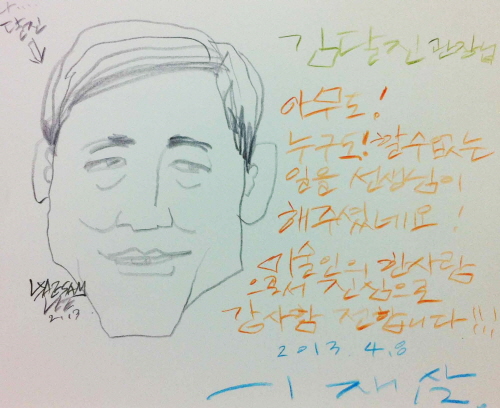 달진
김달진 관장님
아무도!
누구도! 할수없는
일을 선생님이
해주셨네요!
미술인의 한사람
으로서 진심으로
감사함 전합니다!!!
2013.4.8
이재삼
LEE
2013